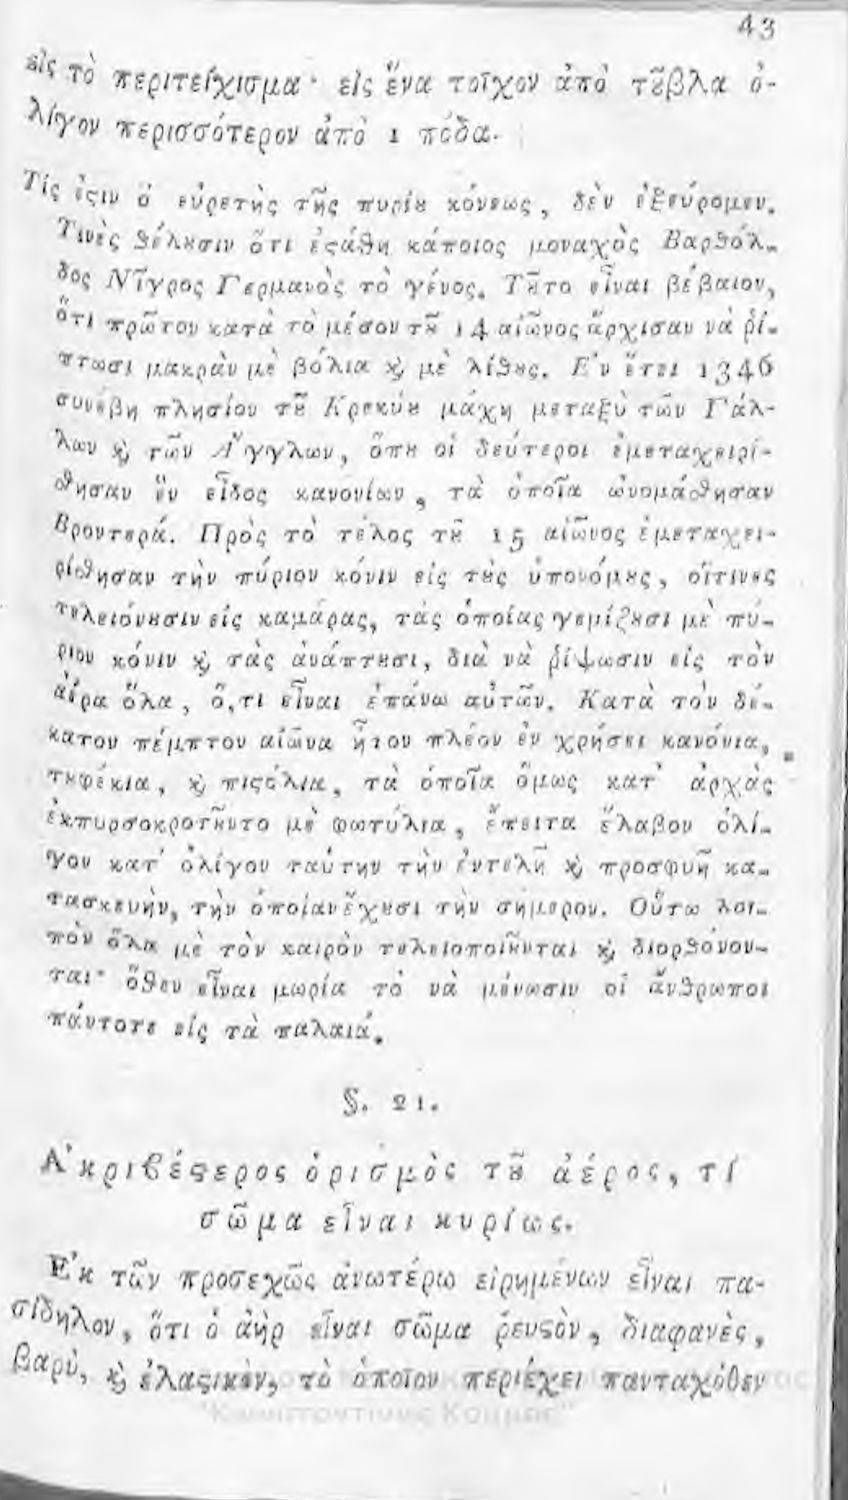 43
εἰς τὸ περιτείχισμα· εἰς ἕνα τοῖχον ἀπὸ τȣ͂βλα ὀ-
λίγον περισσότερον ἀπὸ 1 πόδα.
Τίς ἐϛιν ὁ εὑρετὴς τῆς πυρίȣ κόνεως, δὲν ἐξεύρομεν.
Τινὲς θέλȣσιν ὅτι ἐϛάθη κάποιος μοναχὸς Βαρθόλ-
δος Νῖγρος Γερμανὸς τὸ γένος. Τȣ͂το εἶναι βέβαιον,
ὅτι πρῶτον κατὰ τὸ μέσον τȣ͂ 14 αἰῶνος ἄρχισαν νὰ ῥί-
πτωσι μακρὰν μὲ βόλια ϗ̀ μὲ λίθȣς. Ἐν ἔτει 1346
συνέβη πλησίον τȣ͂ Κρεκύȣ μάχη μεταξὺ τῶν Γάλ-
λων ϗ̀ τῶν Ἄγγλων, ὅπȣ οἱ δεύτεροι ἐμεταχειρί-
θησαν ἓν εἶδος κανονίων, τὰ ὁποῖα ὠνομάθησαν
Βροντερά. Πρὸς τὸ τέλος τȣ͂ 15 αἰῶνος ἐμεταχει-
ρίθησαν τὴν πύριον κόνιν εἰς τȣ̀ς ὑπονόμȣς, οἵτινες
τελειόνȣσιν εἰς καμάρας, τὰς ὁποίας γεμίζȣσι μὲ πύ-
ριον κόνιν ϗ̀ τὰς ἀνάπτȣσι, διὰ νὰ ῥίψωσιν εἰς τὸν
ἀέρα ὅλα, ὅ,τι εἶναι ἐπάνω αὐτῶν. Κατὰ τὸν δέ-
κατον πέμπτον αἰῶνα ἦτον πλέον ἐν χρήσει κανόνια,
τȣφέκια, ϗ̀ πιϛόλια, τὰ ὁποῖα ὅμως κατ' ἀρχὰς
ἐκπυρσοκροτȣ͂ντο μὲ φωτύλια, ἔπειτα ἔλαβον ὀλί-
γον κατ' ὀλίγον ταύτην τὴν ἐντελῆ ϗ̀ προσφυῆ κα-
τασκευὴν, τὴν ὁποίαν ἔχȣσι τὴν σήμερον. Οὕτω λοι-
πὸν ὅλα μὲ τὸν καιρὸν τελειοποιȣ͂νται ϗ̀ διορθόνον-
ται· ὅθεν εἶναι μωρία τὸ νὰ μένωσιν οἱ ἄνθρωποι
πάντοτε εἰς τὰ παλαιά.
§. 21.
Ἀκριβέϛερος ὁρισμὸς τȣ͂ ἀέρος, τί
σῶμα εἶναι κυρίως.
Ἐκ τῶν προσεχῶς ἀνωτέρω εἰρημένων εἶναι πα-
σίδηλον, ὅτι ὁ ἀὴρ εἶναι σῶμα ῥευϛὸν, διαφανὲς,
βαρὺ, ϗ̀ ἐλαϛικὸν, τὸ ὁποῖον περιέχει πανταχόθεν